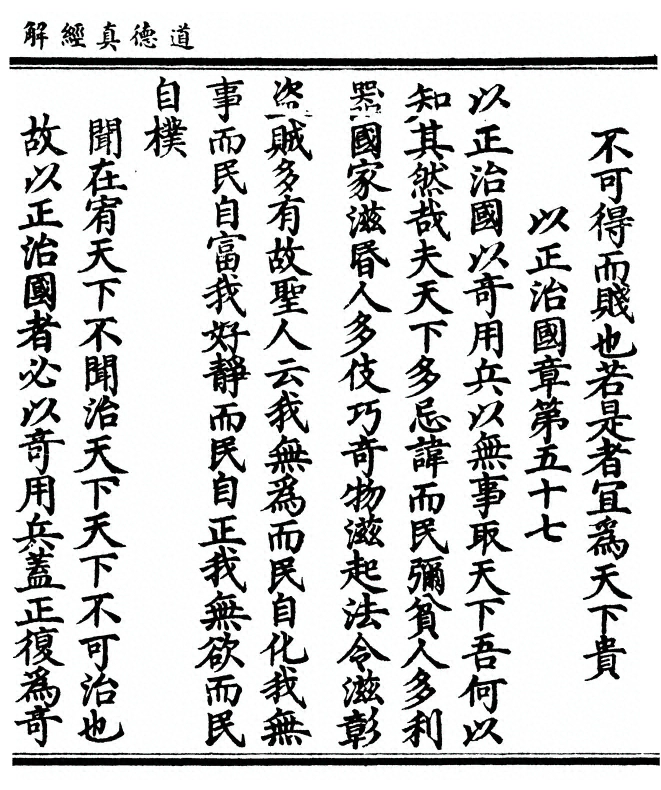 道德真經解
不可得而賤也若是者宜爲天下貴
以正治國章第五十七
以正治國以奇用兵以無事取天下吾何以
知其然哉夫天下多忌諱而民彌貧人多利
器國家滋昬人多伎巧奇物滋起法令滋彰
盗賊多有故聖人云我無爲而民自化我無
事而民自富我好靜而民自正我無欲而民
自樸
聞在宥天下不聞治天下天下不可治也
故以正治國者必以奇用兵蓋正復爲奇